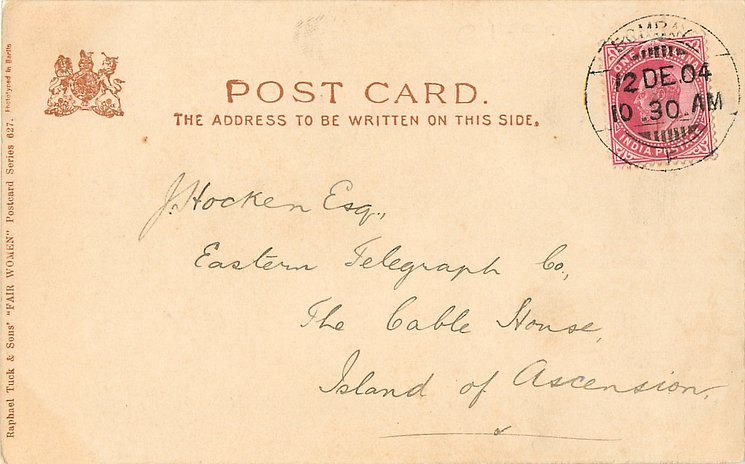 POST CARD.
THE ADDRESS TO BE WRITTEN ON THIS SIDE.
BOMBAY
12 DE.04
10.30 AM
ONE ANNA
INDIA POSTAGE
J. Hocken Esq.,
Eastern Telegraph Co.,
The Cable House,
Island of Ascension.
Raphael Tuck & Sons' "FAIR WOMEN" Postcard Series 627. Phototyped in Berlin